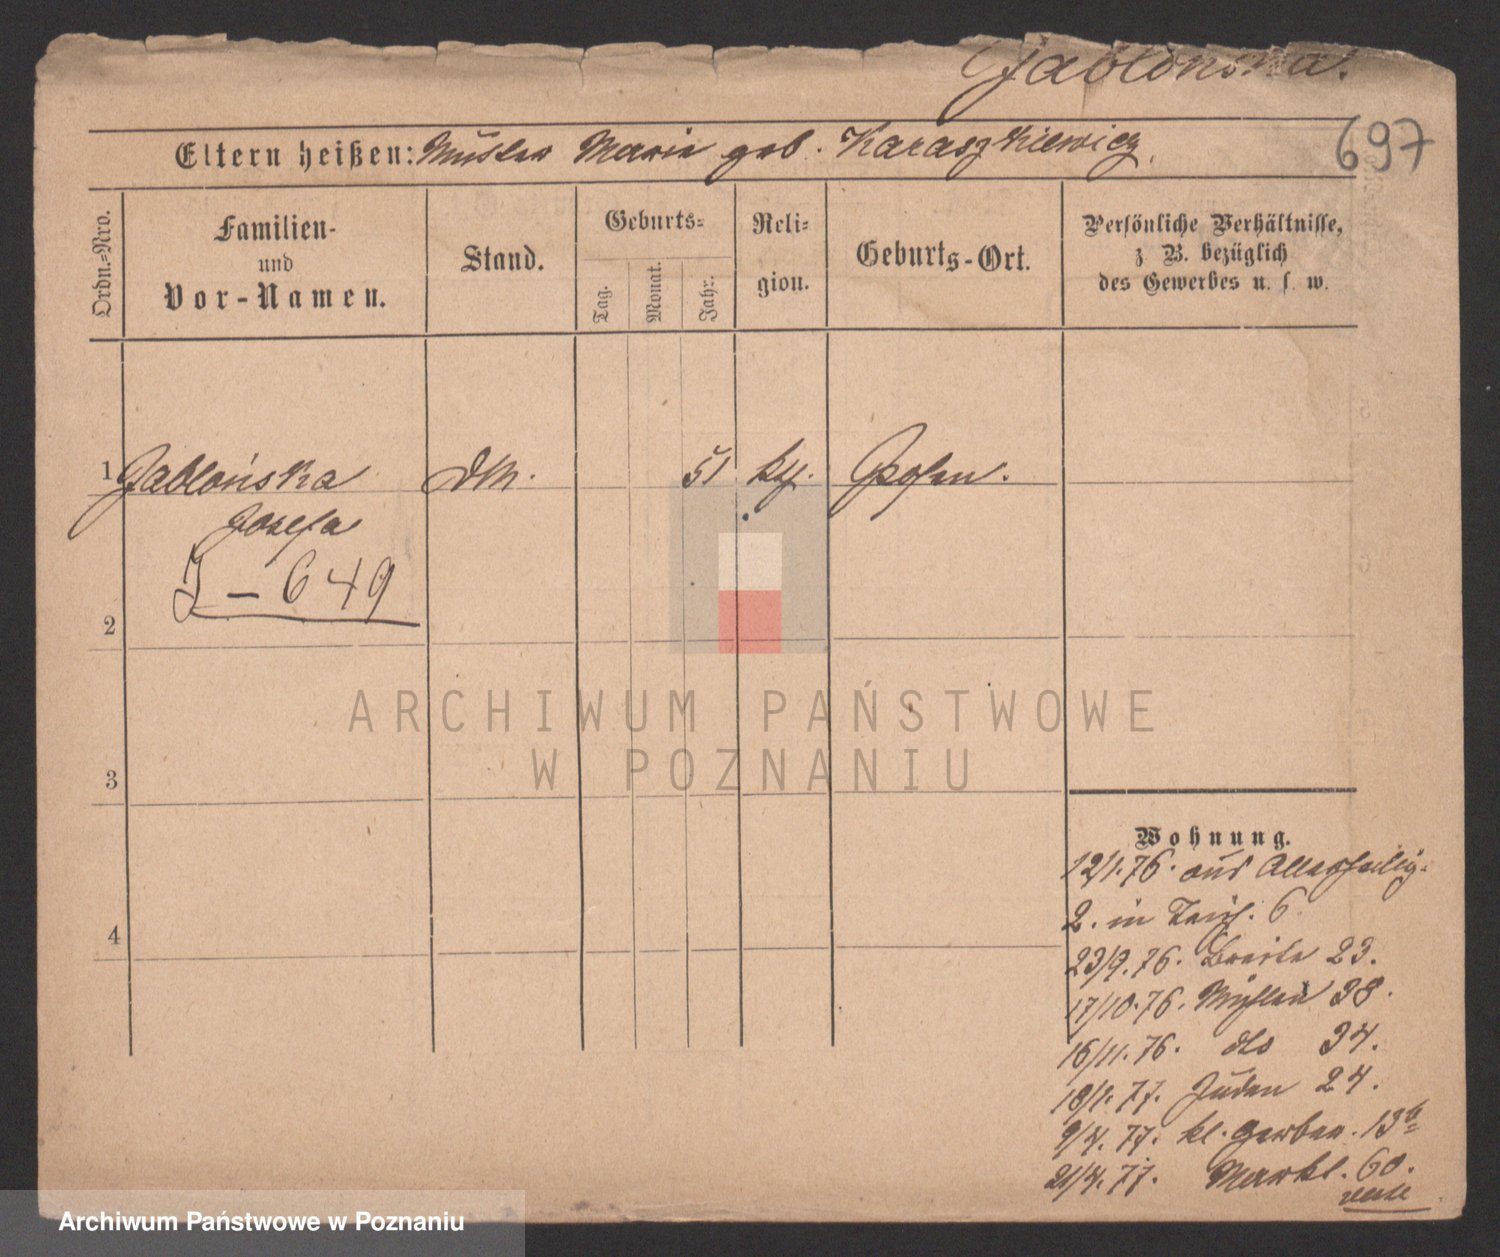 Jabłońska.
697
Eltern heißen: Mutter Marie geb. Karaszkiewicz.
Ordn.=Nro.
Familien-
und
Vor-Namen.
Stand.
Geburts=
Tag.
Monat.
Jahr.
Reli=
gion.
Geburts-Ort.
Persönliche Verhältnisse,
z. B. bezüglich
des Gewerbes u. s. w.
1 Jabłońska DM. 51 kth. Posen.
Josefa
J - 649
2
3
4
ARCHIWUM PAŃSTWOWE
W POZNANIU
Wohnung.
12/1.76. aus Allerheilig-
2. in 6
23/9.76. Breite 23.
17/10.76. Mühlen 38.
16/11.76. dto 34.
18/1.77. Juden 24.
9/4.77. kl. Gerber. 13b
21/4.77. Markt. 60.
Archiwum Państwowe w Poznaniu